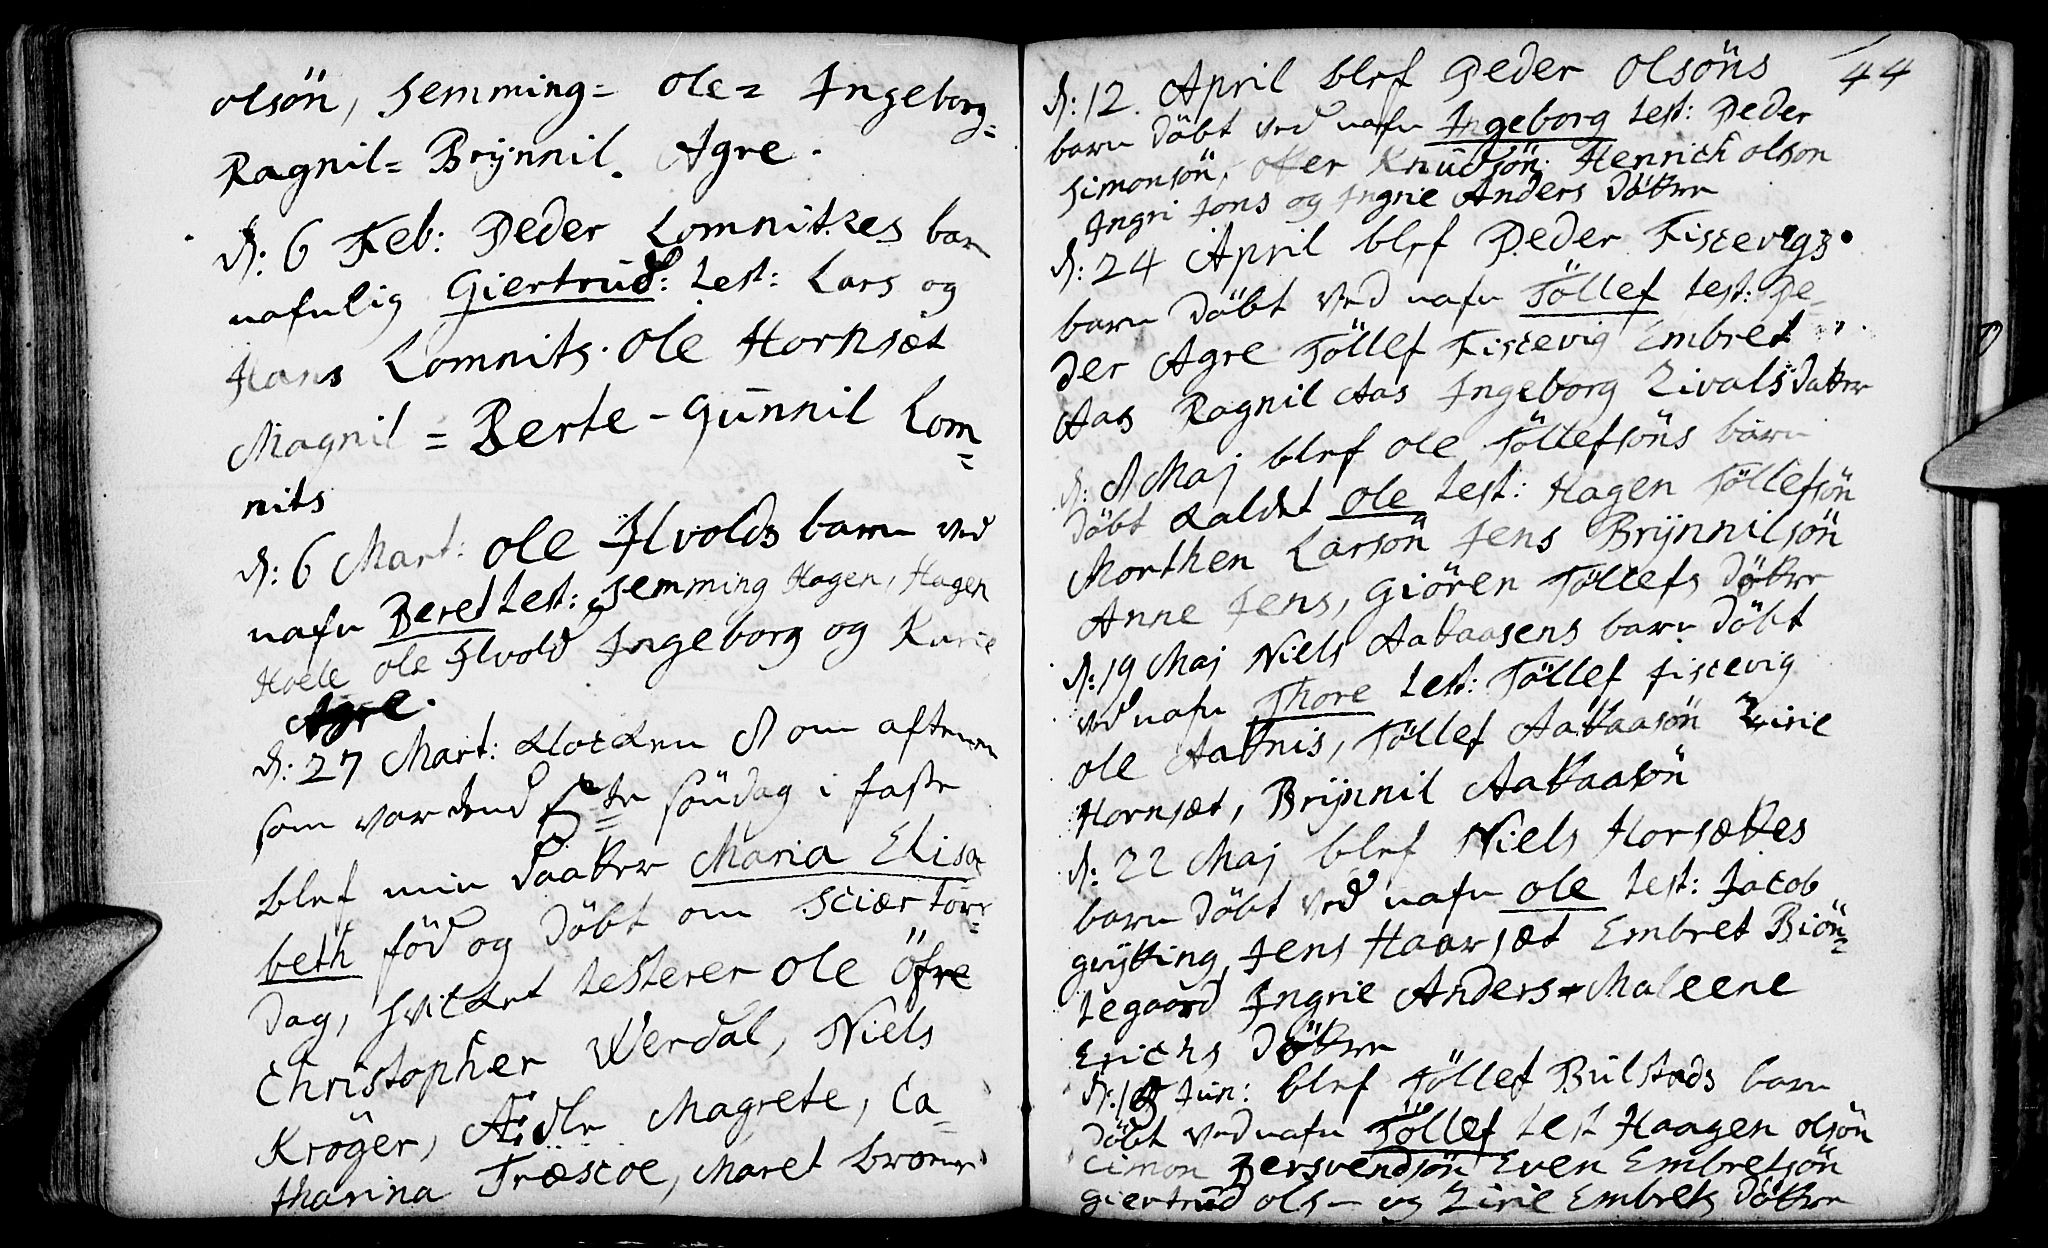 olsön, Semming= ole= Ingeborg=
Ragnil= Brÿnnil. Agre.
d: 6 Feb: Peder Lomnitzes barn
nafnlig Giertrud: test: Lars og
Hans Lomnits. Ole Hornsæt
Magnil = Berte - Gunnil Lom=
nits
d: 6 Mart: ole Ilvolds barn ved
nafn Beret test: Semming Hagen, Hagen
Hoele ole Ilvold Ingeborg og Karie
Agre.
d: 27 Mart: Klocken 9 om aftenen
som var dend 5te söndag i faste
blef min Daatter Maria Elisa
beth föd og döbt om Sciærtors=
dag, hvilket testerer Ole Öfre
Christopher Werdal, Niels
Kröger, Magrete, Ca=
tharina Træscoe, Maret
44
d: 12 April blef Peder Olsöns
barn döbt ved nafn Ingeborg test: Peder
Simonsön, Knudsön, Henrich olson
Ingri Jons og Ingrie Anders Döttre
d: 24 April blef Peder Fiscevigs
barn döbt ved nafn Töllef test: Pe=
der Agre Töllef Fiscevig Embret
Aas Ragnil Aas Ingeborg Zivalsdatter
d: 9 Maj blef ole Töllefsöns barn
döbt kaldet ole test: Hagen Töllefsön
Morthen Larsön Jens Brÿnnilsön
Anne Jens, Giören Töllefs döttre
d: 19 Maj Niels Aakaasens barn döbt
ved nafn Thore test: Töllef fiscevig
ole Aaknis, Töllef Aakaasön Zirie
Hornsæt, Brÿnnil Aakaasön
d: 22 Maj blef Niels Horsættes
barn döbt ved nafn ole test: Jacob
grÿtting, Jens Haarsæt Embret Biön=
tegaard Ingrie Anders= Maleene
Erichs Döttre
Jun: blef Töllef Bulstads barn
döbt ved nafn Töllef test Haagen olsön
Cimon Bersvendsön Even Embretsön
giertrud ols - og Zirie Embrets Döttre